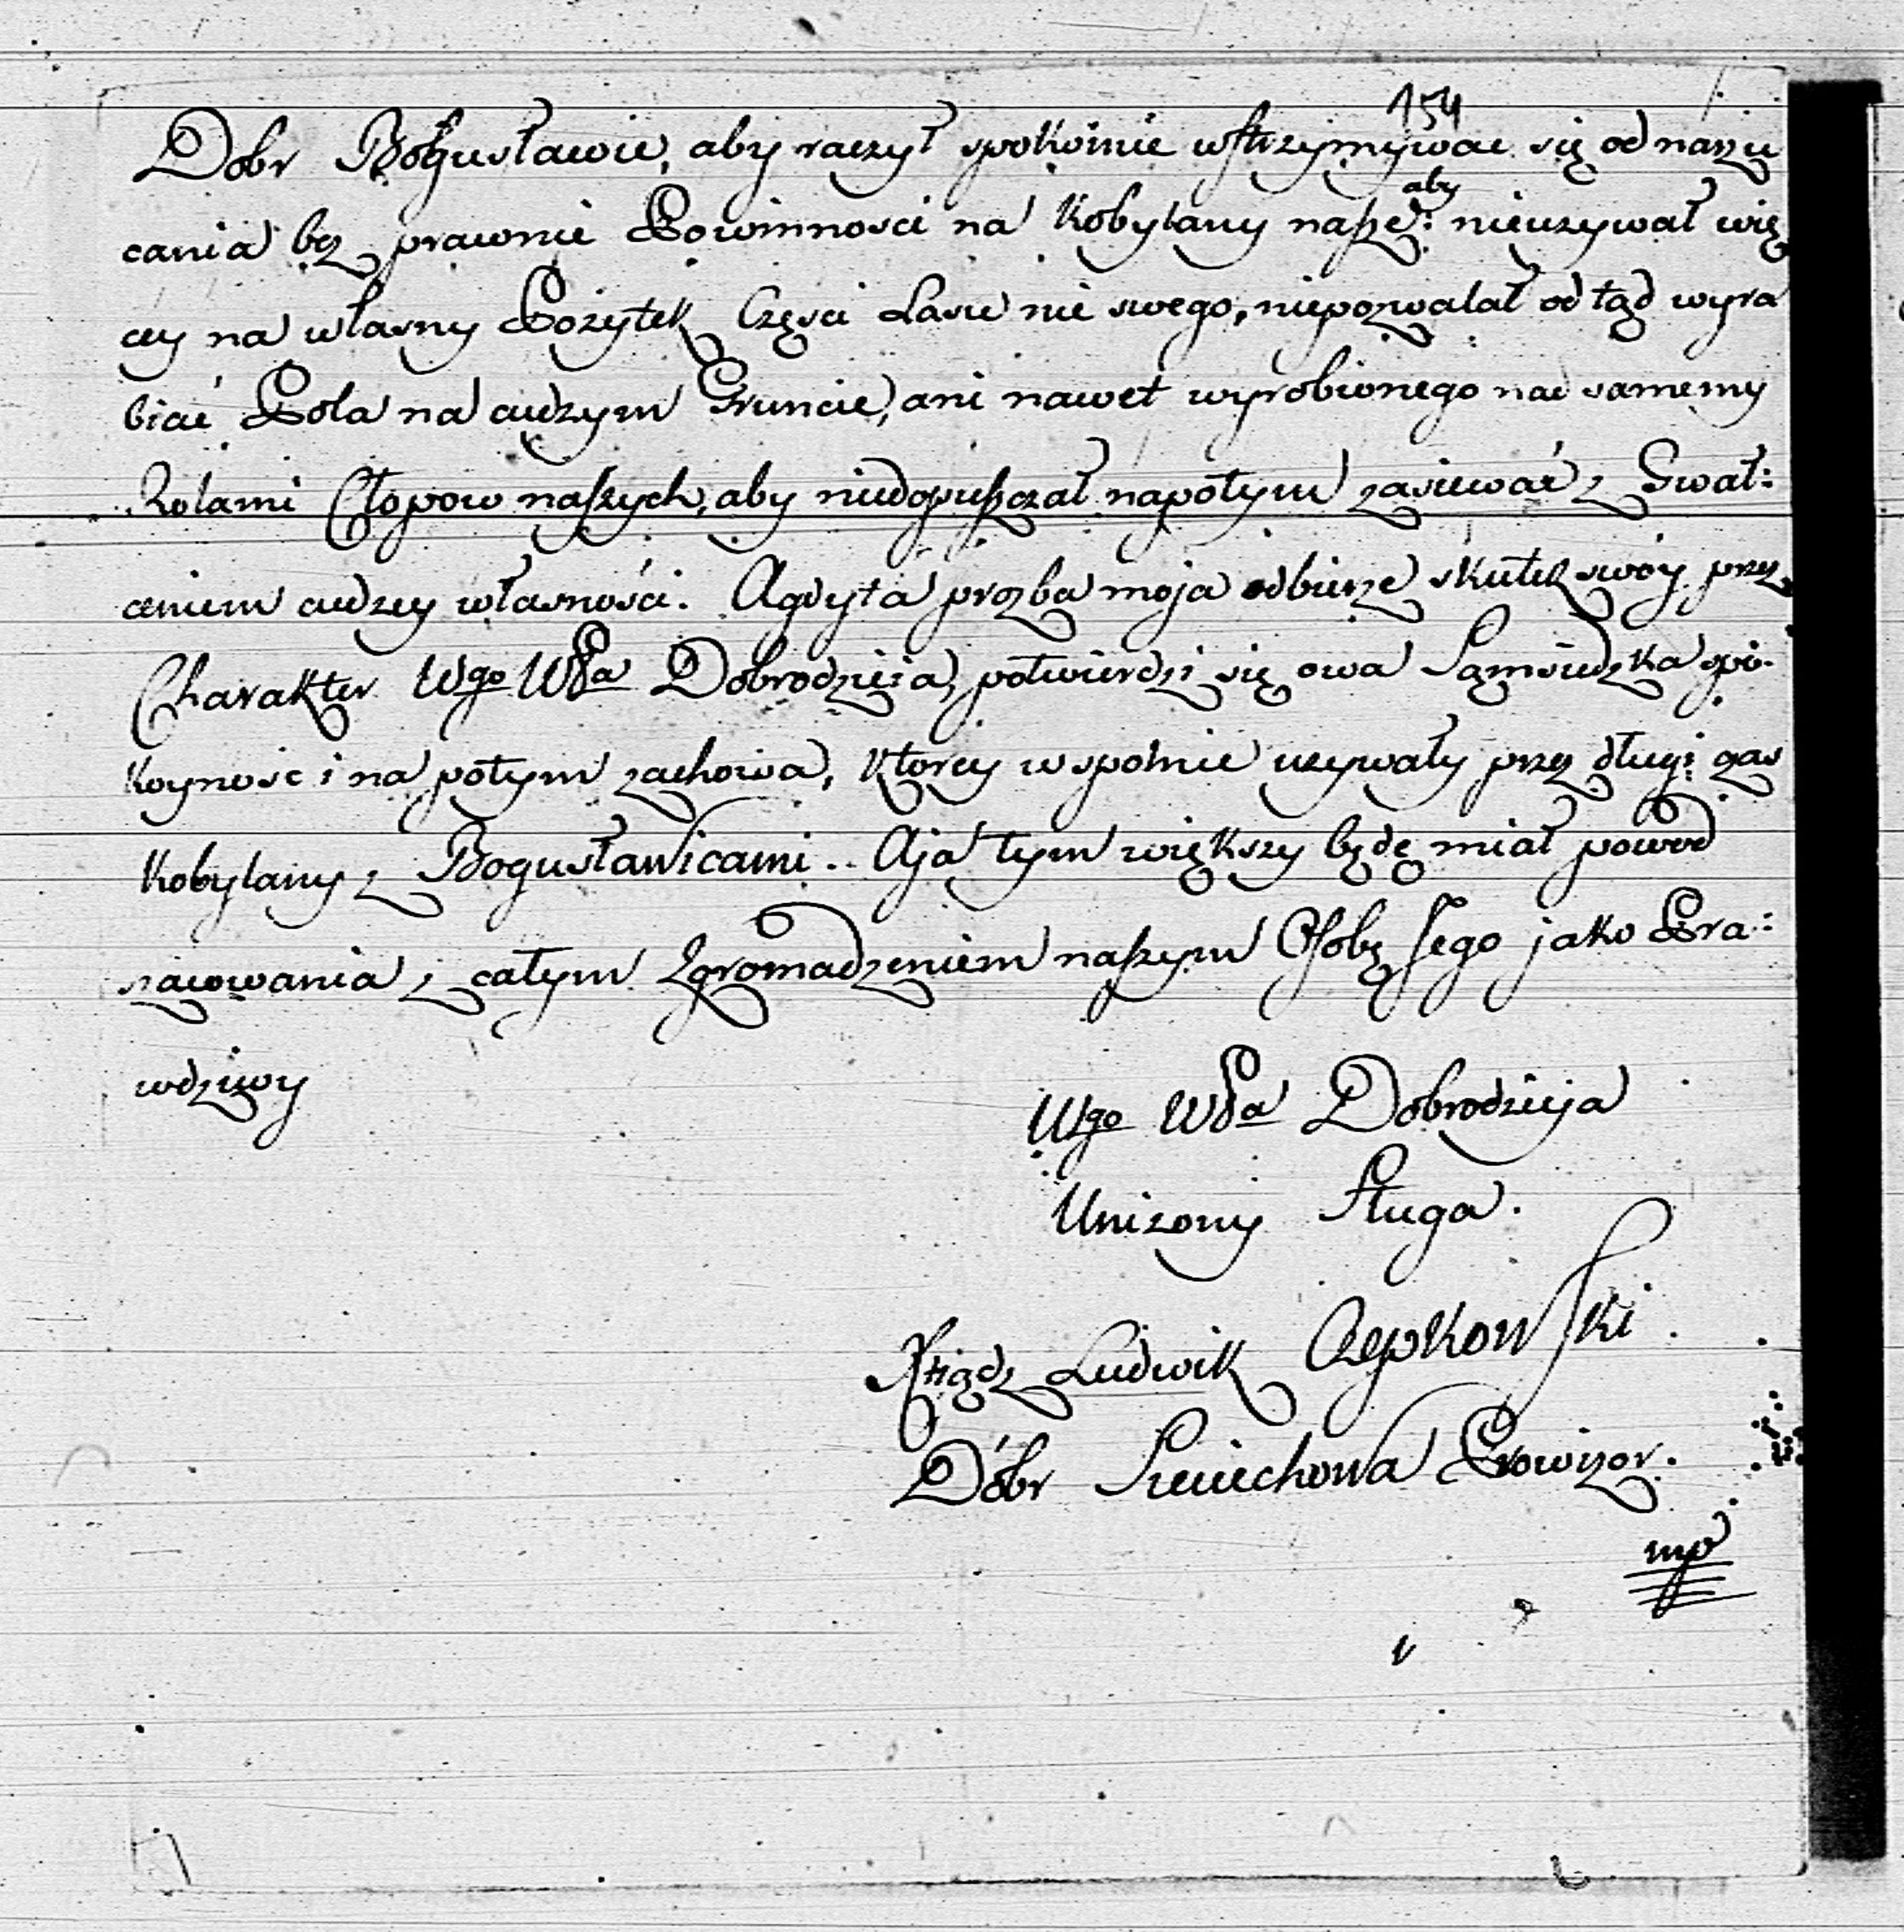 154
Dobr Bogusławie, aby raczył spokoinie wstrzymywac się od narzu
cania bez prawnie Powinnosci na Kobylany nasze: aby nieuzywał wię
cey na własny Pożytek Częsci Lasu nie swego, niepozwalał od tąd wyra
biać Pola na cudzym Gruncie, ani nawet wyrobionego nad samemy
Rolami Chłopow naszych, aby niedopuszczał napotym zasiewać z Gwał:
ceniem cudzey własności. A gdy ta prozba moja odbierze skutek swóy przez
Charakter Wgo WPa Dobrodzieia, potwierdzi się owa Sąmsiedzka spo-
koynosc i na potym zachowa, ktorey wspolnie uzywały przez długi czas
Kobylany z Bogusławicami.. A ja tym większy będę miał powod
szacowania z całym Zgromadzeniem naszym Osobę Jego jako Pra:
wdziwy
Wgo WPa Dobrodzieja
Unizony Sługa.
Xiądz Ludwik Czepkowski.
Dóbr Prowizor.
mp